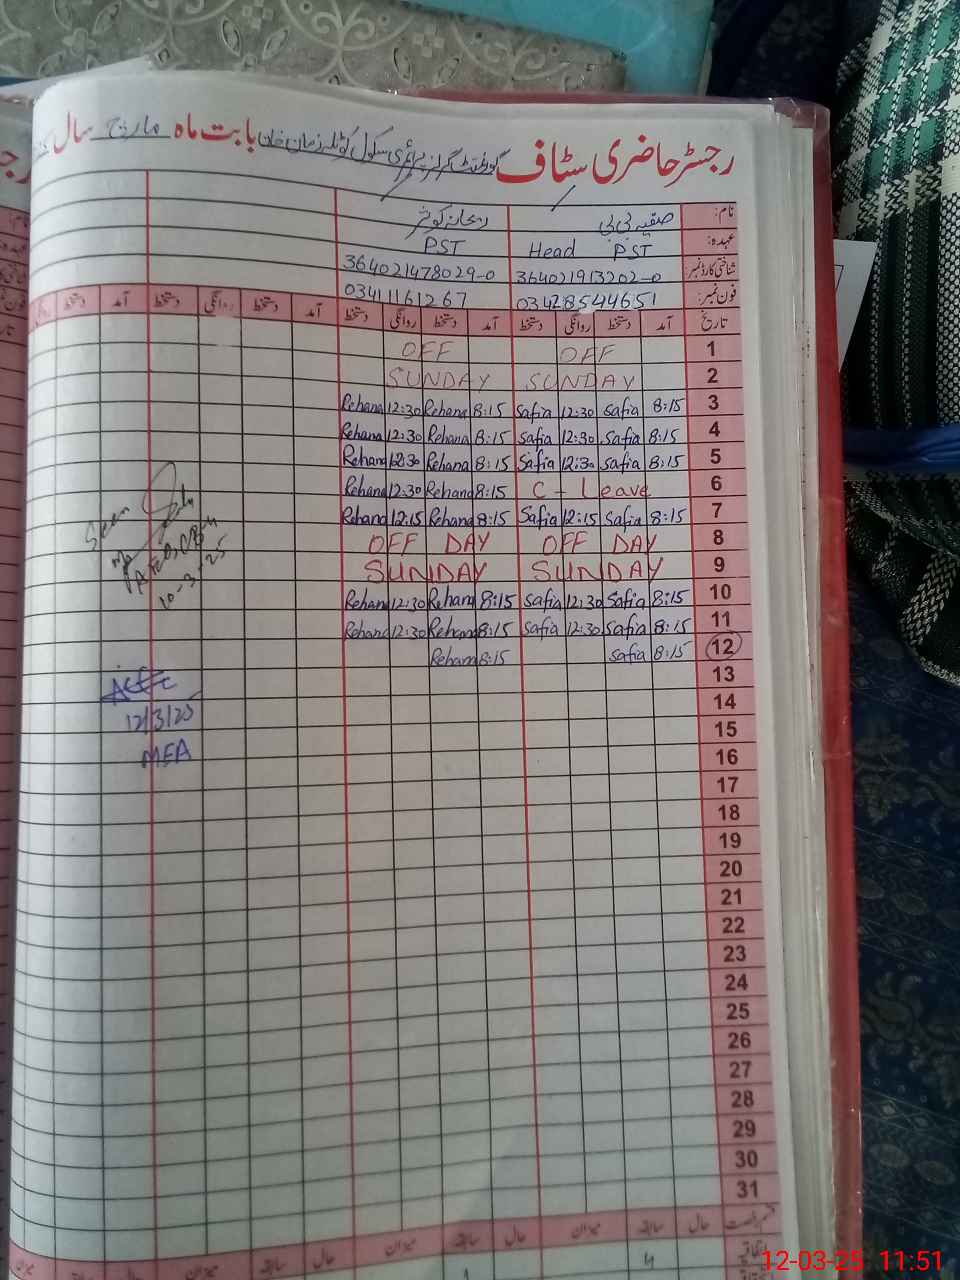 رجسٹر حاضری سٹاف گورنمنٹ گرلز پرائمری سکول کوٹلہ زمان خان بابت ماہ مارچ سال
نام: صفیہ بی بی ریحانہ کوثر
عہدہ: Head PST PST
شناختی کارڈ نمبر: 364021913202-0 364021478029-0
فون نمبر: 03428544651 03411161267
تاریخ آمد دستخط روانگی دستخط آمد دستخط روانگی دستخط آمد دستخط روانگی دستخط آمد دستخط روانگی
1 OFF OFF
2 SUNDAY SUNDAY
3 8:15 Safia 12:30 Safia 8:15 Rehana 12:30 Rehana
4 8:15 Safia 12:30 Safia 8:15 Rehana 12:30 Rehana
5 8:15 Safia 12:30 Safia 8:15 Rehana 12:30 Rehana
6 C - Leave 8:15 Rehana 12:30 Rehana
7 8:15 Safia 12:15 Safia 8:15 Rehana 12:15 Rehana
8 OFF DAY OFF DAY
9 SUNDAY SUNDAY
10 8:15 Safia 12:30 Safia 8:15 Rehana 12:30 Rehana
11 8:15 Safia 12:30 Safia 8:15 Rehana 12:30 Rehana
12 8:15 Safia 8:15 Rehana
13
14
15
16
17
18
19
20
21
22
23
24
25
26
27
28
29
30
31
Seen
10-3-25
12/3/25
MEA
قسم رخصت حال سابقہ میزان حال سابقہ میزان حال سابقہ میزان
اتفاقیہ 4
12-03-25 11:51